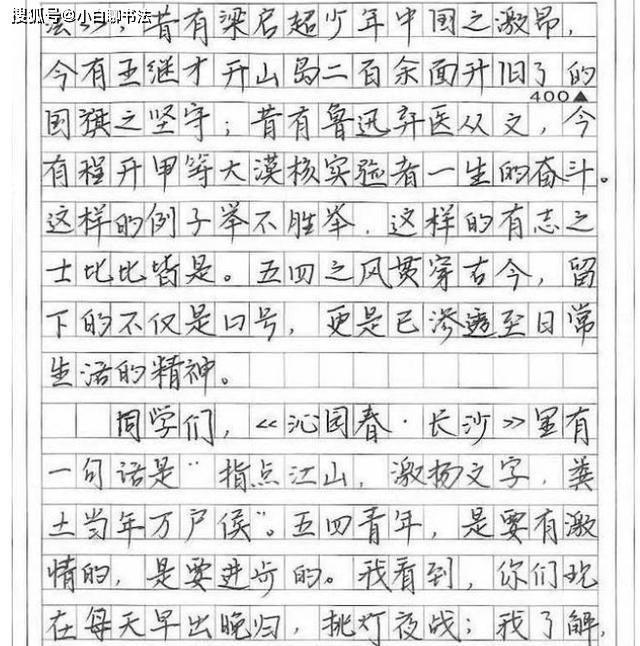 搜狐号@小白聊书法
法》；昔有梁启超少年中国之激昂，
今有王继才开山岛二百余面升旧了的
400▲
国旗之坚守；昔有鲁迅弃医从文，今
有程开甲等大漠核实验者一生的奋斗。
这样的例子举不胜举，这样的有志之
士比比皆是。五四之风贯穿古今，留
下的不仅是口号，更是已渗透至日常
生活的精神。
同学们，《沁园春·长沙》里有
一句话是“指点江山，激扬文字，粪
土当年万户侯”。五四青年，是要有激
情的，是要进步的。我看到，你们现
在每天早出晚归，挑灯夜战；我了解，